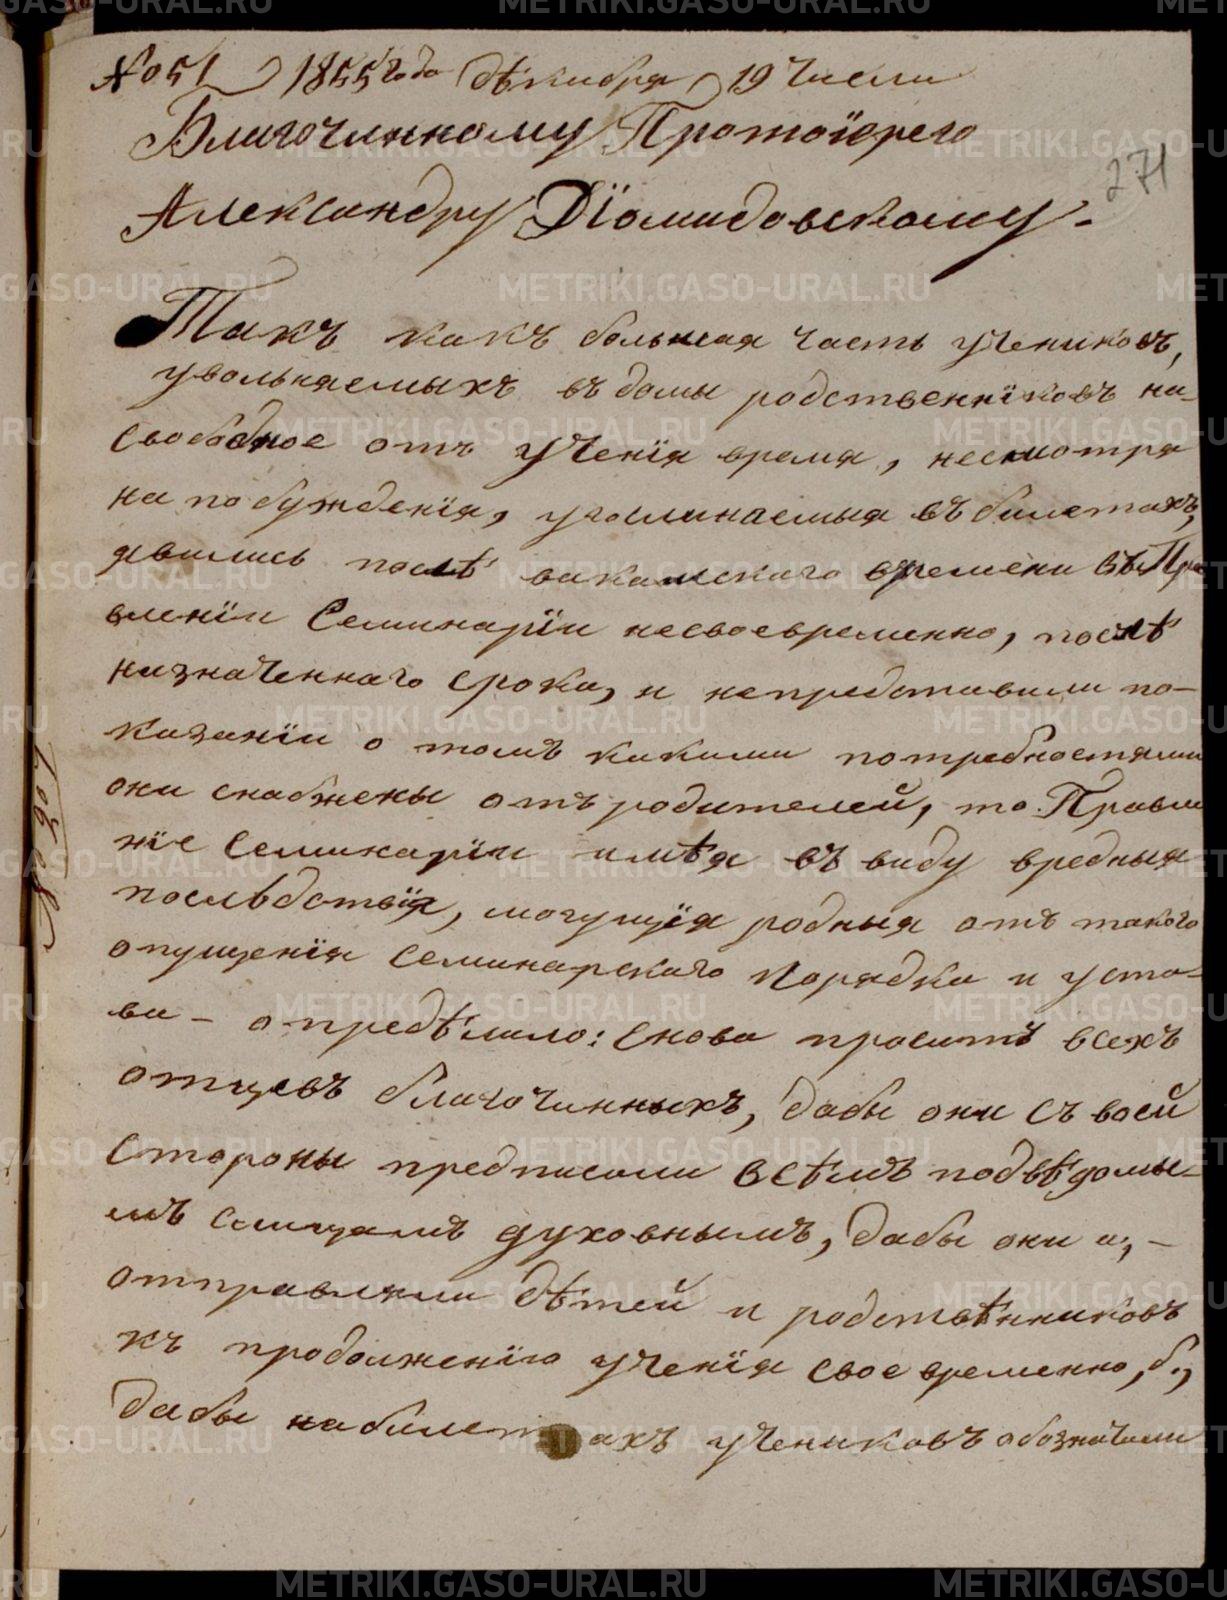 № 51 1855 года Дѣкабря 19 числа
271
Благочинному Протоіерею
Александру Діомидовскому.
Такъ какъ большая часть учениковъ,
увольняемыхъ въ домы родственніковъ на
свободное отъ ученія время, несмотря
на побужденія, упоминаемыя въ билетахъ,
явились послѣ вакатскаго времени въ Пра
вленіи Семинаріи несвоевременно, послѣ
назначеннаго срока, и непредставили по-
казаніи о томъ какими потребностями
они снабжены отъ родителей, то Правле
ніе Семинаріи имѣя въ виду вредныя
послѣдствія, могущія родныя отъ такого
опущенія Семинарскаго порядка и уста-
ва – опредѣлило: снова просить всехъ
отцевъ благочинныхъ, дабы они съ воей
стороны предписали всѣмъ подвѣдомы-
мъ лицамъ духовнымъ, дабы они а, –
отправляли дѣтей и родствѣнниковъ
къ продолженію ученія своевременно, б.,
дабы на билетахъ учениковъ обозначали
METRIKI.GASO-URAL.RU